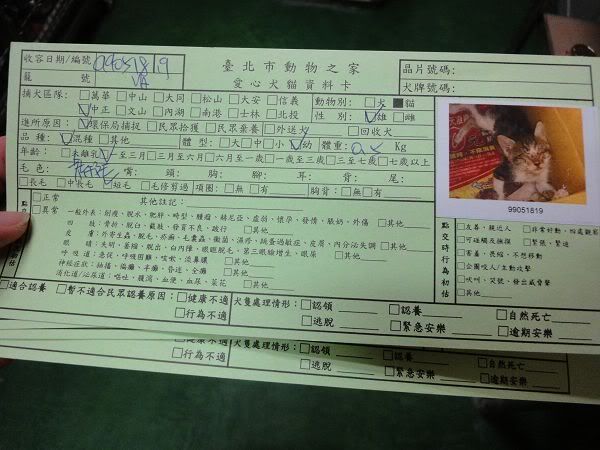 收容日期/編號 990518 19
臺北市動物之家
晶片號碼:
籠 號
愛心犬貓資料卡
犬牌號碼:
捕犬區隊: □萬華 □中山 □大同 □松山 □大安 □信義 動物別: □犬 ■貓
☑中正 □文山 □內湖 □南港 □士林 □北投 性 別: ☑雄 □雌
進所原因: ☑環保局捕捉 □民眾拾獲 □民眾棄養 □外送犬 □回收犬
品種: ☑混種 □其他 體型: □大 □中 □小 ☑幼 體重: Kg
年齡: □未離乳 □一至三月 □三月至六月 □六月至一歲 □一歲至三歲 □三至七歲 □七歲以上
毛色: 嘴: 頭: 胸: 腳: 耳: 背: 尾:
□長毛 □中長毛 ☑短毛 □毛修剪過 項圈: □無 □有 胸背: □無 □有
99051819
□正常 其他註記:
□異常 一般外表: 削瘦、脫水、肥胖、畸型、腫瘤、赫尼亞、虛弱、懷孕、發情、脹奶、外傷 □其他
四 肢: 骨折、脫臼、截肢、發育不良、跛行 □其他
皮 膚: 外寄生蟲、脫毛、疥癬、毛囊蟲、黴菌、濕疹、跳蚤過敏症、皮屑、內分泌失調 □其他
眼 睛: 失明、萎縮、脫出、白內障、眼瞼脫毛、第三眼瞼增生、眼屎 □其他
呼吸道: 急促、呼吸困難、咳嗽、流鼻膿 □其他
神經症狀: 抽搐、癲癇、半癱、昏迷、全癱 □其他
消化道/泌尿道: 嘔吐、腹瀉、血便、血尿、菜花 □其他
點交時行為初估
□友善、親近人 □非常好動、四處觀察
□可碰觸及擁抱 □緊張、緊迫
□害羞、畏縮、不想移動
□公開咬人/主動攻擊
□吠叫、哭號、發出威脅聲
□其他
□適合認養 □暫不適合民眾認養原因: □健康不適 犬隻處理情形: □認領 □認養 □自然死亡
□行為不適 □逃脫 □緊急安樂 □逾期安樂
□健康不適 犬隻處理情形: □認領 □認養 □自然死亡
□行為不適 □逃脫 □緊急安樂 □逾期安樂